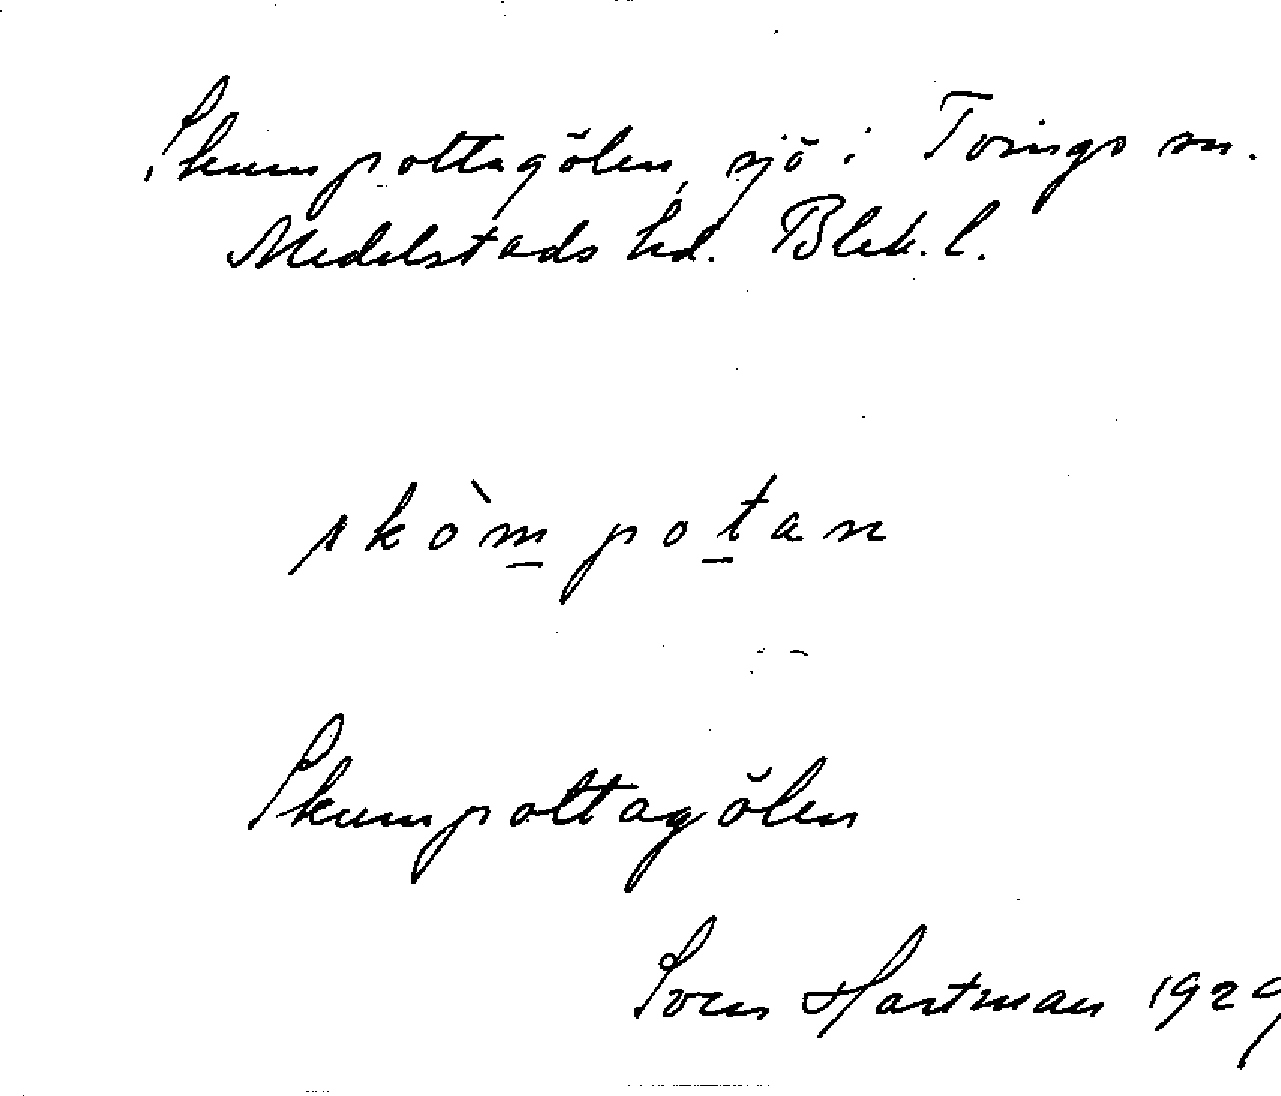 Skumpottagölen, sjö i Tvings sn.
Medelstads hd. Blek. l.
skòm̲pot̲an
Skumpottagölen
Sven Hartman 1929